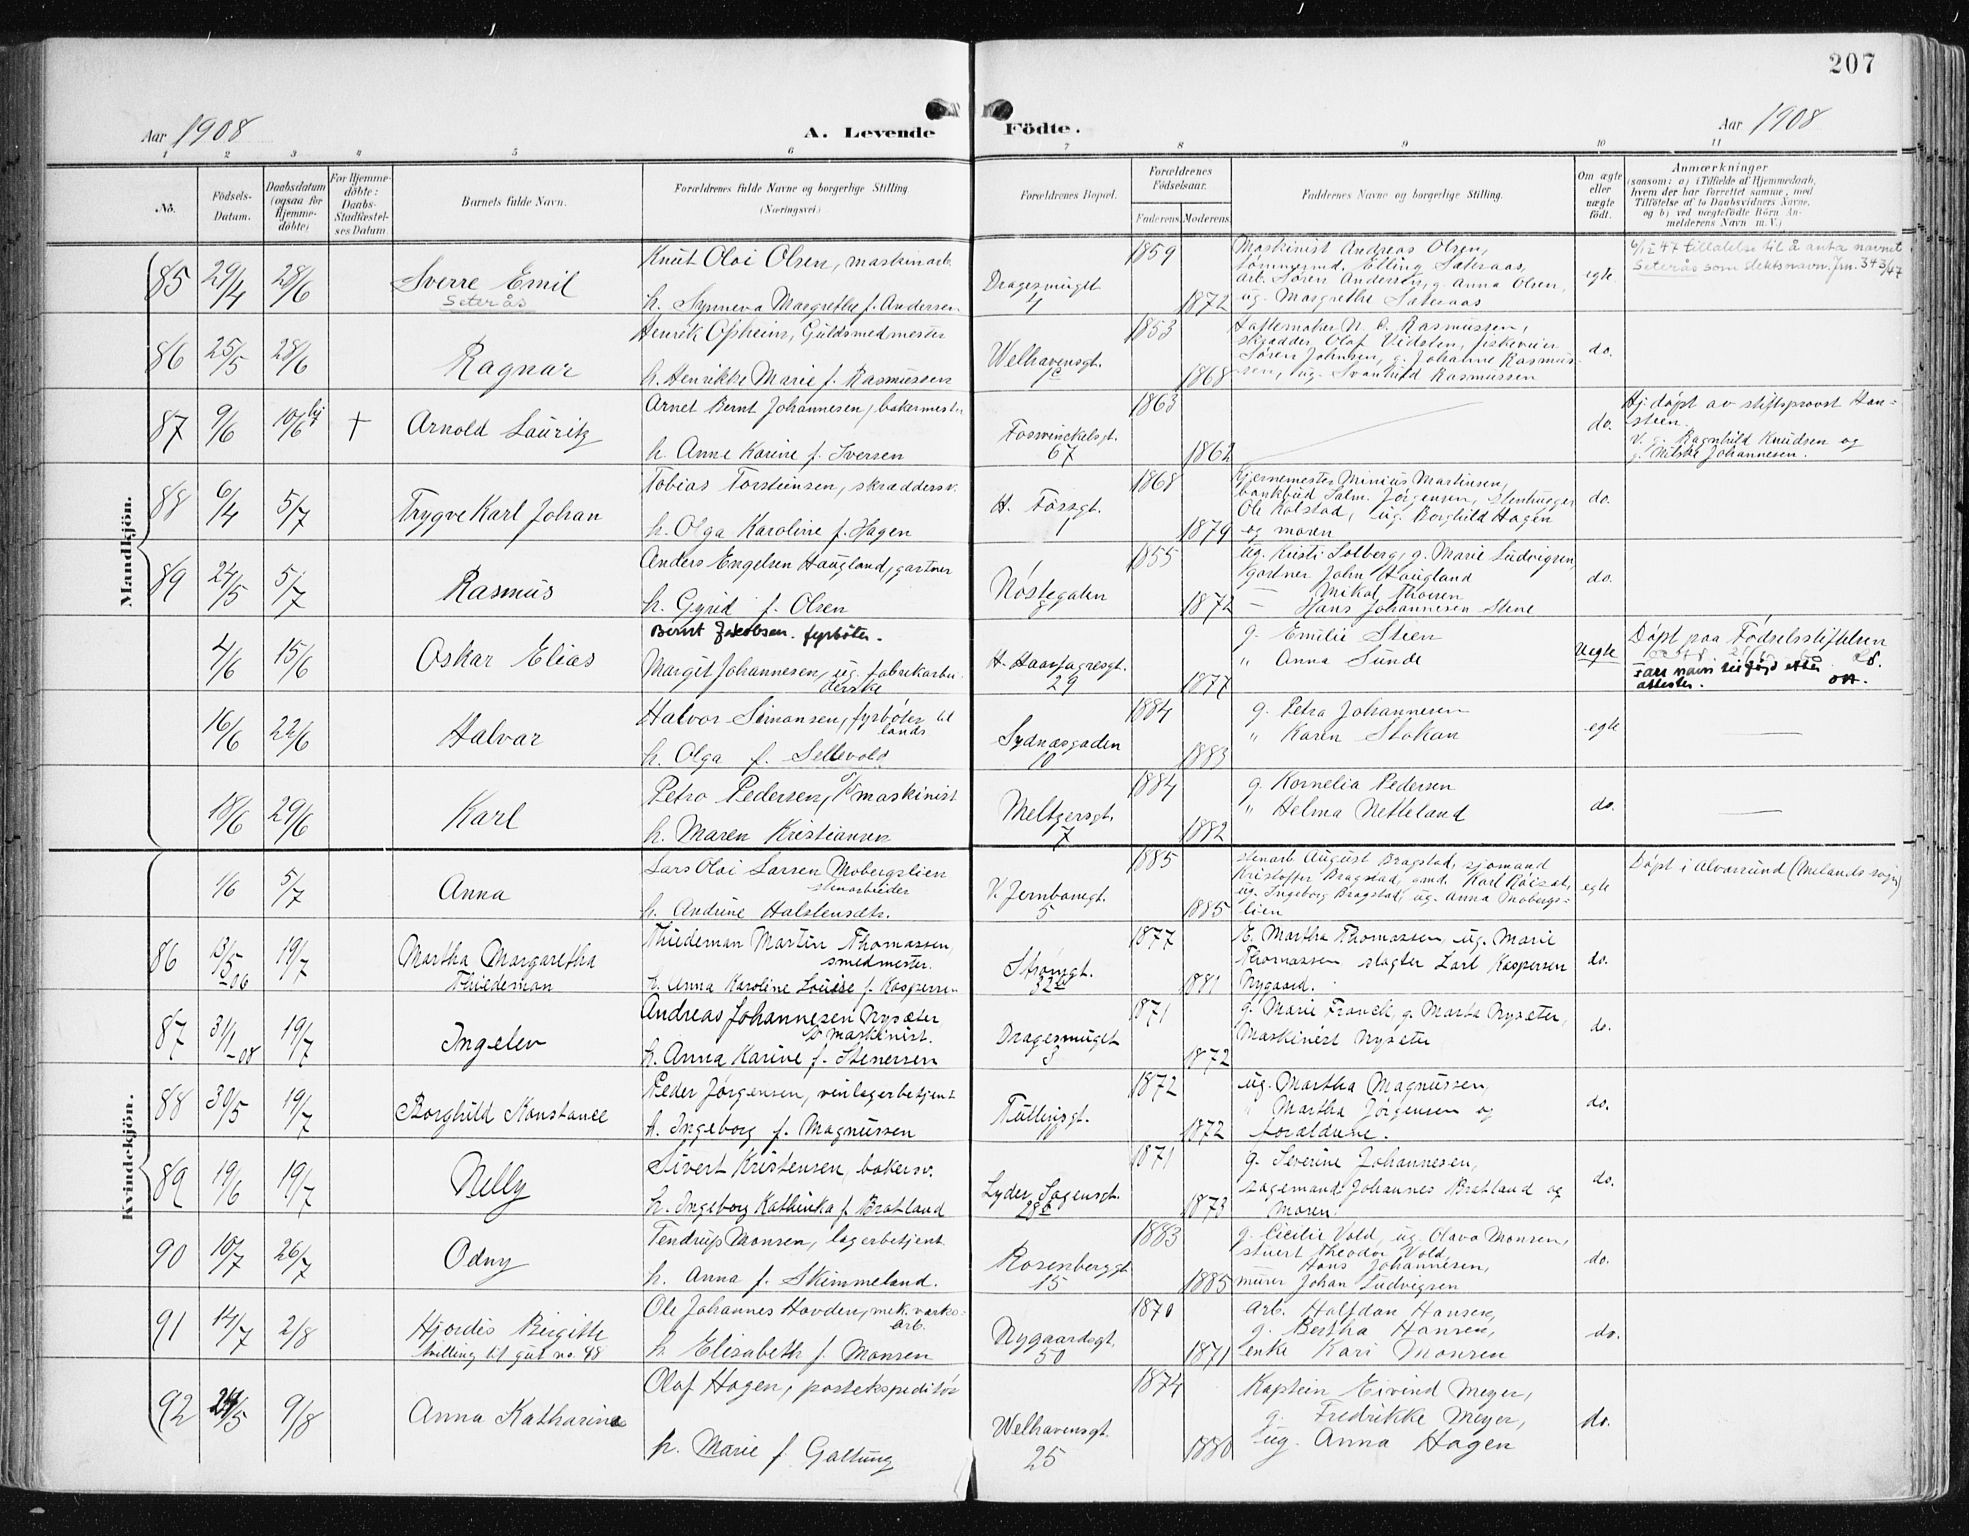 207
Aar 1908
A. Levende
Födte.
Aar 1908
1 2 3 4 5 6 7 8 9 10 11
No.
Födsels-
Datum.
Daabsdatum
(ogsaa for
Hjemme-
döbte)
For Hjemme-
döbte:
Daabs-
Stadfæstel-
ses Datum.
Barnets fulde Navn.
Forældrenes fulde Navne og borgerlige Stilling
(Næringsvei)
Forældrenes Bopæl.
Forældrenes
Födselsaar.
Faderens. Moderens.
Faddernes Navne og borgerlige Stilling.
Om ægte
eller
uægte
födt.
Anmærkninger
(saasom: a) i Tilfælde af Hjemmedaab,
hvem der har forrettet samme, med
Tilföielse af to Daabsvidners Navne,
og b) ved uægtefödte Börn An-
melderens Navn m.V.)
Mandkjön.
85 29/4 28/6
Sverre Emil
Seterås
Knut Oloi Olsen, maskinarb.
h. Synneva Margrethe f. Andersen
Dragesmuget
4
1859
1872
Maskinist Andreas Olsen,
tømmermd. Elling Sæteraas,
arb. Søren Andersen, g. Anna Olsen,
ug. Margrethe Sæteraas
egte.
6/12 47 tillatelse til å anta navnet
Seterås som slektsnavn. Jnr. 343/47
86 25/5 28/6
Ragnar
Henrik Opheim, Guldsmedmester
h. Henrikke Marie f. Rasmussen
Welhavensgt.
1853
1868
N. C. Rasmussen,
skrædder Olaf Vidsten, fiskeveier
Søren Johnsen, g. Johanne Rasmus-
sen, ug. Svanhild Rasmussen
do.
87 9/6 10/6 hj
†
Arnold Lauritz
Arnet Bernt Johannesen, bakermestr
h. Anne Karine f. Iversen
Fosswinckelsgt.
67
1863
1862
do.
Hj. døpt av stiftsprovst Han-
steen.
v. g. Ragnhild Knudsen og
g. Milska Johannesen.
88 6/4 5/7
Trygve Karl Johan
Tobias Torsteinsen, skræddersv.
h. Olga Karoline f. Hagen
H. Fossgt.
1
1868
1879
Minius Martinsen,
bankbud Salm. Jørgensen, stenhugger
Ole Kolstad, ug. Borghild Hagen
og moren
do.
89 24/5 5/7
Rasmus
Anders Engelsen Haugland, gartner
h. Gyrid f. Olsen
Nøstegaten
1855
1872
ug. Kristi Solberg, g. Marie Ludvigsen,
gartner John Haugland
— Mikal Thoesen
— Hans Johannesen Stene
do.
4/6 15/6
Oskar Elias
Bernt Jakobsen. fyrbøter.
Margit Johannesen, ug. fabrikarbei
derske
H. Haarfagresgt.
29
1877
g. Emilie Steen
„ Anna Sunde
Uegte
Døpt paa Fødselsstiftelsen
Fars navn tilføjd efter
attester.
16/6 22/6
Halvar
Halvor Simonsen, fyrbøter til
lands
h. Olga f. Sellevold
Sydnæsgaden
10
1884
1883
g. Petra Johannesen
„ Karen Stokan
egte
—
18/6 29/6
Karl
Petro Pedersen, maskinist
h. Maren Kristiansen
Meltzersgt.
7
1884
1882
g. Kornelia Pedersen
„ Helma Netteland
do.
—
Kvindekjön.
1/6 5/7
Anna
Lars Oloi Larsen Mobergslien
stenarbeider
h. Andrine Halstensdtr.
V. Jernbanegt.
5
1885
1885
stenarb. August Bragstad, sjømand
Kristoffer Bragstad, smd. Karl
ug. Ingeborg Bragstad, ug. Anna Mobergs-
lien
egte
Døpt i Alværsund (Melands sogn)
86 13/5 06 19/7
Martha Margaretha
Thiedeman
Thiedeman Martin Thomassen,
smedmester.
h. Anna Karoline Louise f. Kaspersen
Strømgt.
32
1877
1881
E. Martha Thomassen, ug. Marie
Thomassen slagter Carl Kaspersen
Nygaard.
do.
87 31/1-08 19/7
Ingelev
Andreas Johannesen Nysæter,
maskinist.
h. Anna Karine f. Stenersen
Dragesmuget
3
1871
1872
g. Marie Franck, g. Marta Nysæter,
Maskinist Nysæter
do.
88 30/5 19/7
Borghild Konstance
Peder Jørgensen, vinlagerbetjent
h. Ingeborg f. Magnussen
Tullinsgt.
1872
1872
ug. Martha Magnussen,
" Martha Jørgensen og
forældrene.
do.
89 19/6 19/7
Nelly
Sivert Kristensen, bakersv.
h. Ingeborg Kathinka f. Bratland
Lyder Sagensgt.
28
1871
1873
g. Severine Johannesen,
Johannes Bratland og
Moren
do.
90 10/7 26/7
Odny
Tendrup Monsen, lagerbetjent
h. Anna f. Skimmeland.
Rosenberggt.
15
1883
1885
g. Cicilie Vold, ug. Olava Monsen,
stuert Theodor Vold,
Hans Johannesen,
murer Johan Ludvigsen
do.
91 14/7 2/8
Hjørdis Birgitte
tvilling til gut no. 98
Ole Johannes Hovden, mek. værks-
arb.
h Elisabeth f. Monsen
Nygaardsgt.
50
1870
1871
Arb. Halfdan Hansen,
g. Bertha Hansen,
enke Kari Monsen
do.
92 24/5 9/8
Anna Katharina
Olaf Hagen, postekspeditør
h. Marie f. Galtung
Welhavensgt.
25
1874
1880
Kaptein Eivind Meyer,
g. Fredrikke Meyer,
ug. Anna Hagen
do.